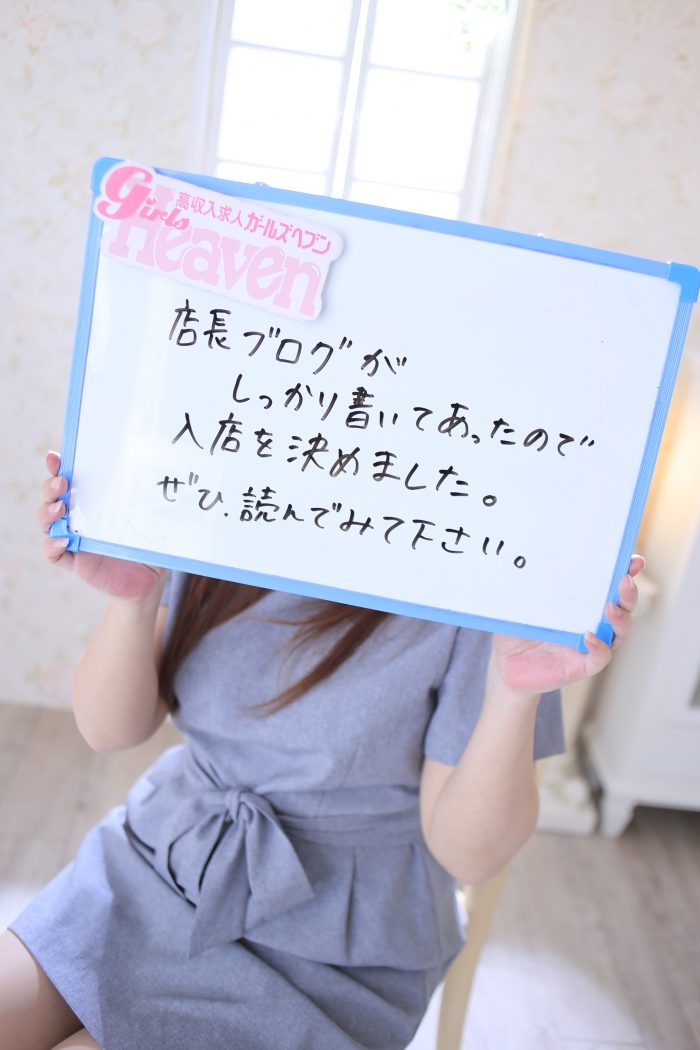 高収入求人ガールズヘブン
Girls
Heaven
店長ブログが
しっかり書いてあったので
入店を決めました。
ぜひ.読んでみて下さい。